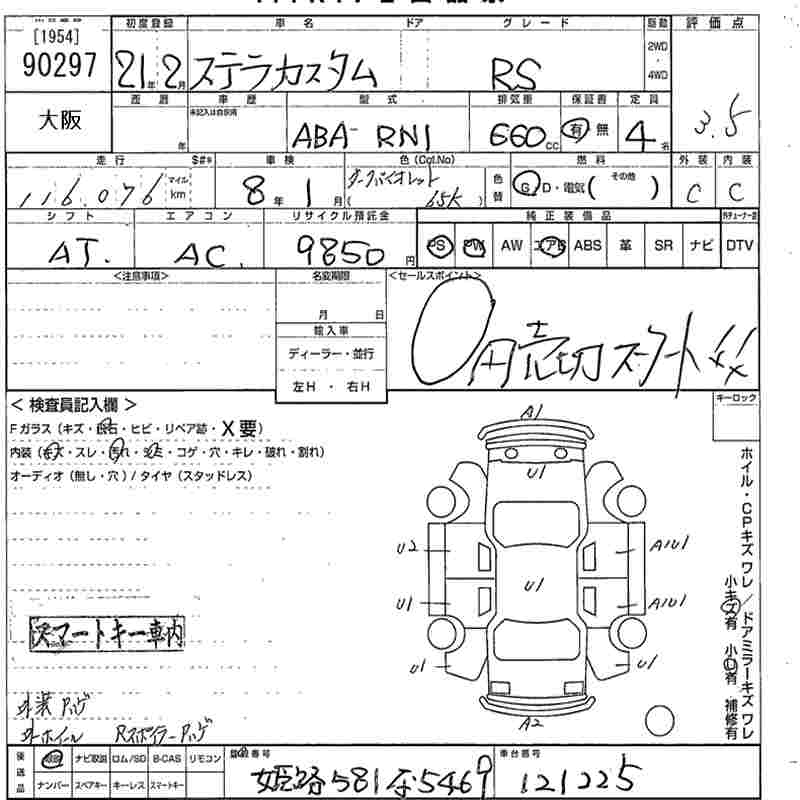 [1954]
90297
大阪
初度登録
21年2月
車名
ドア
グレード
駆動
評価点
ステラカスタム
RS
2WD
・
4WD
3.5
車歴
未記入は自家用
型式
排気量
保証書
定員
年
ABA-RN1
660cc
有 無
4名
走行
S#*
車検
色(Col.No)
燃料
外装
内装
116,076
マイル
km
8年1月
ダークバイオレット
65K
色替
G・D・電気( その他 )
C
C
シフト
エアコン
リサイクル預託金
純正装備品
AT.
AC.
9850円
PS
PW
AW
エアB
ABS
革
SR
ナビ
DTV
<注意事項>
名変期限
<セールスポイント>
月 日
輸入車
ディーラー・並行
左H・右H
0円売切スタート!!
<検査員記入欄>
キーロック
Fガラス(キズ・飛石・ヒビ・リペア跡・X要)
内装(キズ・スレ・汚れ・シミ・コゲ・穴・キレ・破れ・割れ)
オーディオ(無し・穴)/タイヤ(スタッドレス)
A1
U1
U2
A1U1
U1
U1
A1U1
U1
U1
A2
ホイル・CPキズ ワレ/ドアミラーキズ ワレ
小キズ有 小凹有 補修有
スマートキー車内
外装ハゲ
Rスポイラーハゲ
後送品
取説
ナビ取説
ロム/SD
B-CAS
リモコン
ナンバー
スペアキー
キーレス
スマートキー
登録番号
姫路581
5469
車台番号
121225